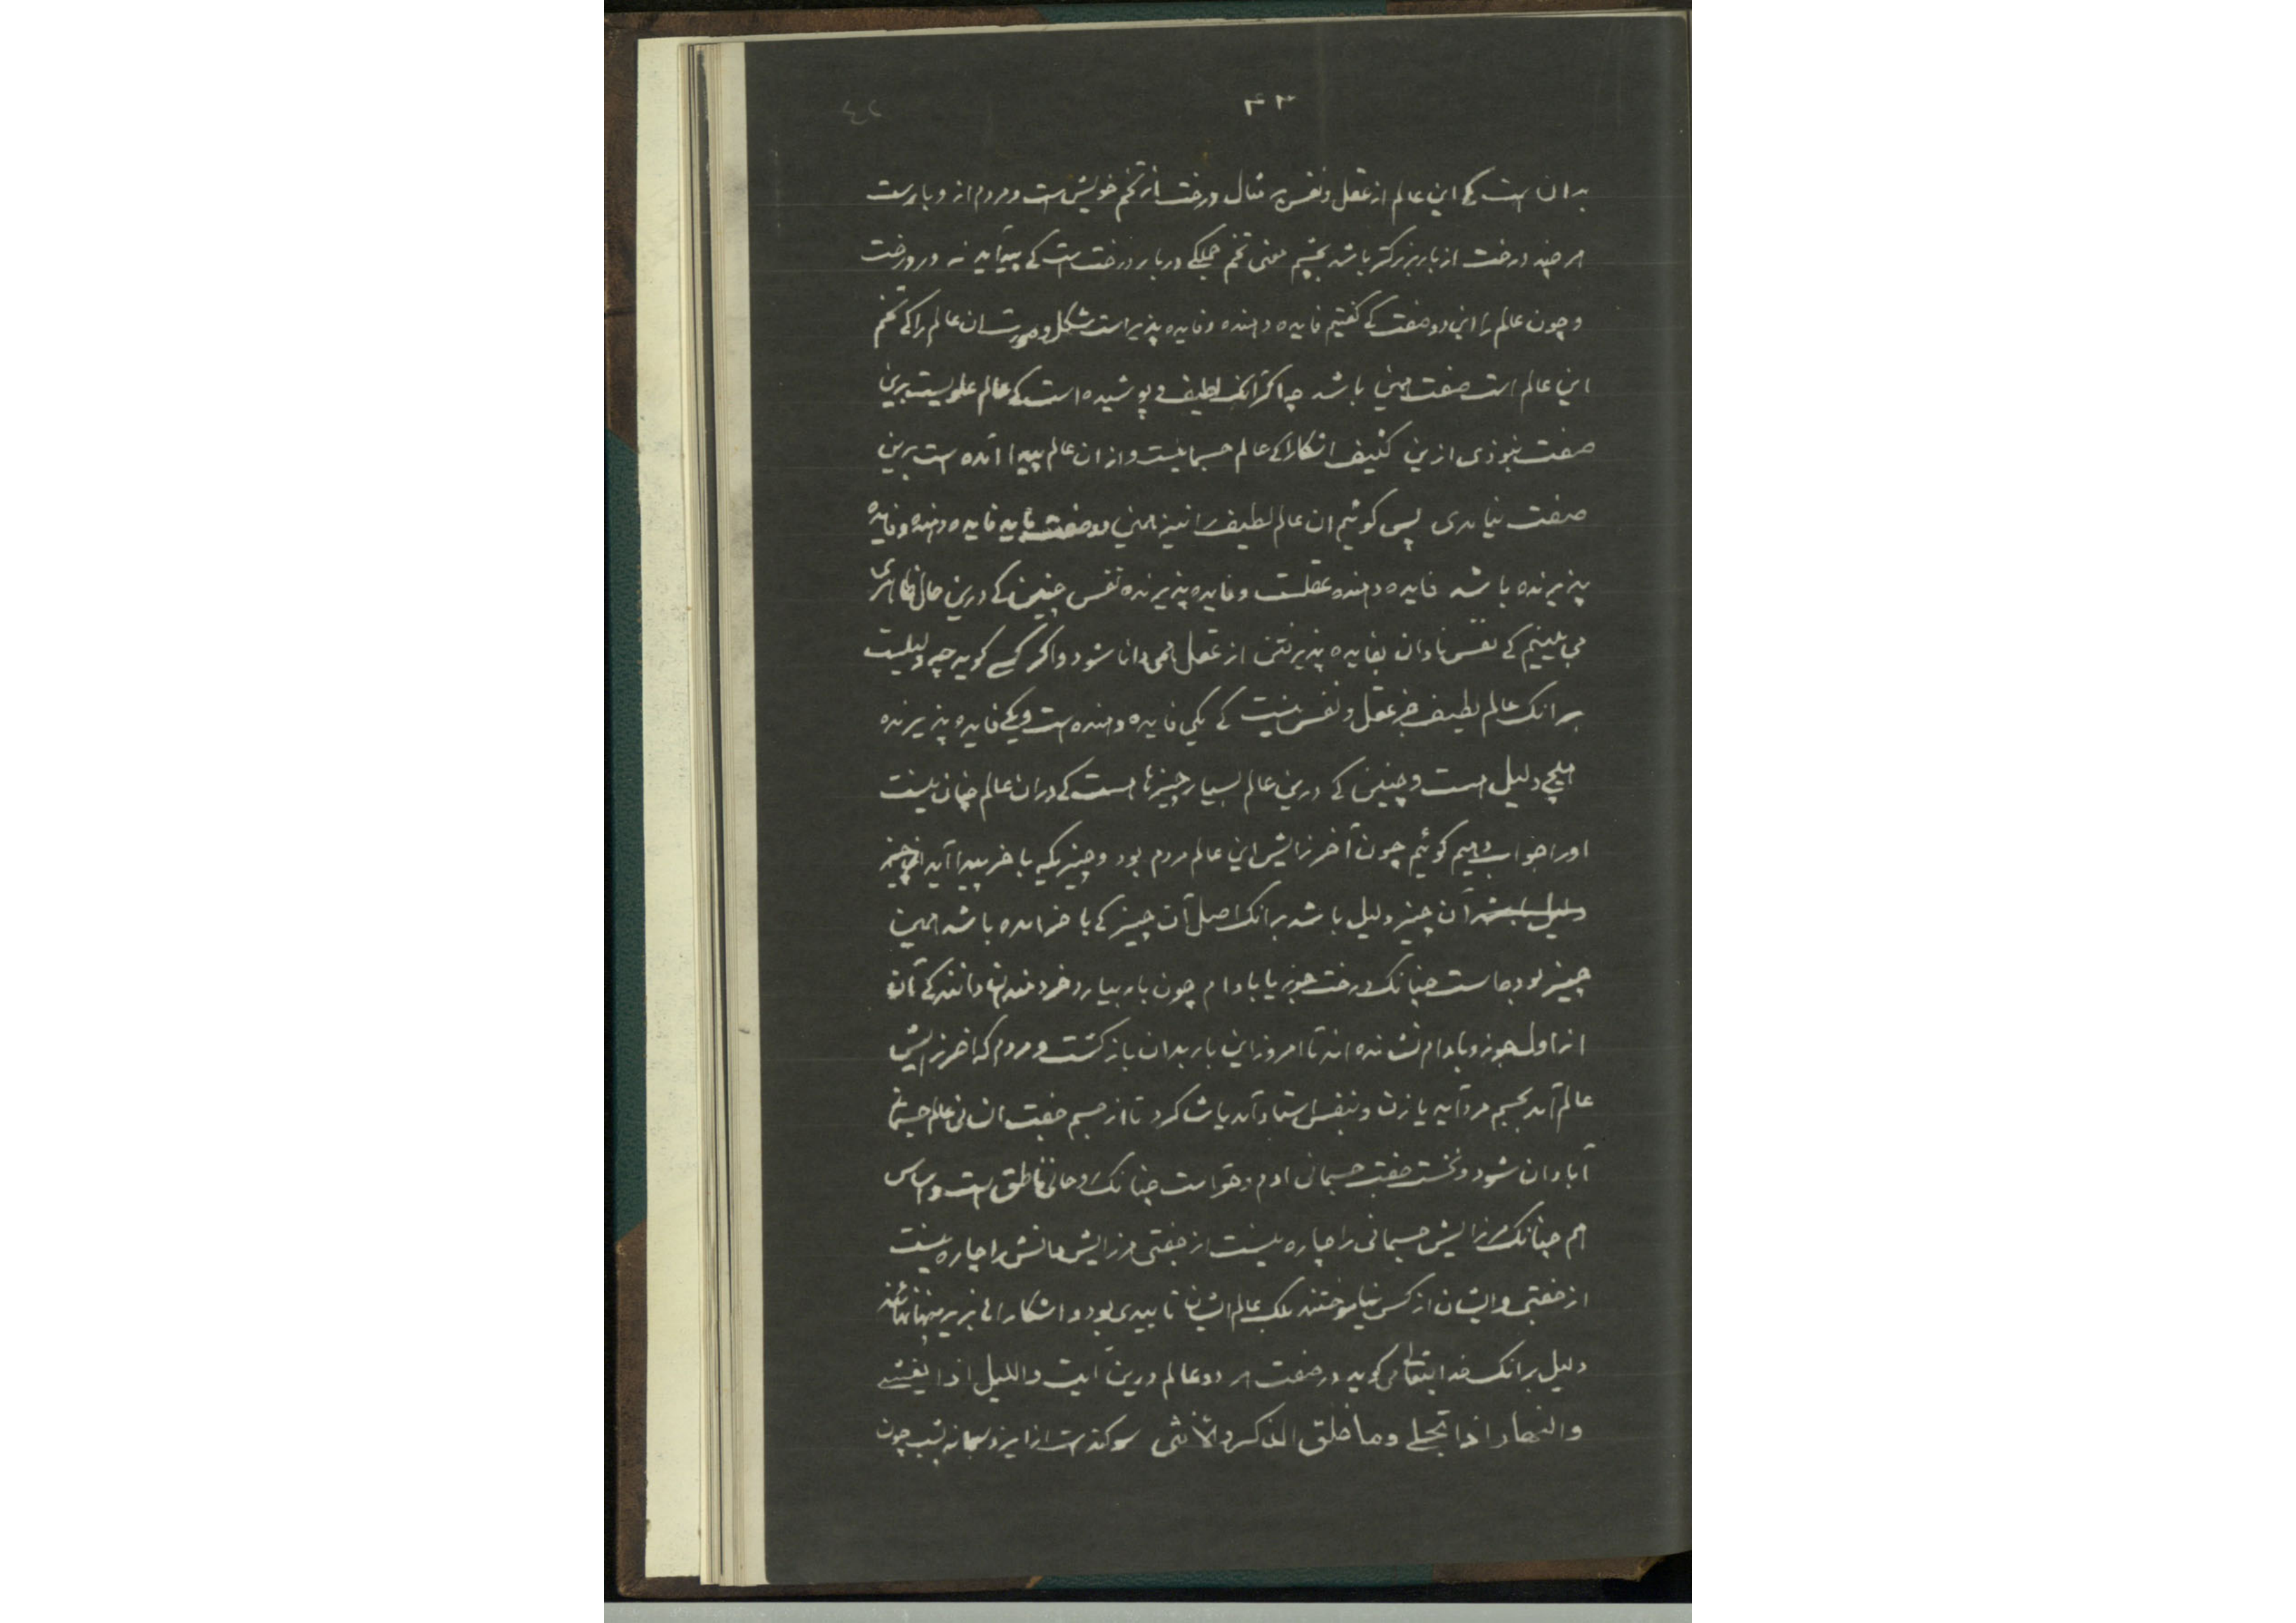 ۴۳
بدان است کی این عالم از عقل و نفس بر مثال درخت از تخم خویش است و مردم ازو بارست
هر چند درخت از بار بزرگتر باشد بچشم معنی تخم جملگی در بار درخت است کی پیدآید نه در درخت
و چون عالم را این دو صفت کی گفتیم فایده دهنده و فایده پذیر است شکل و صورت ان عالم را کی تخم
این عالم است صفت همین باشد چه اگر انک لطیف و پوشیده است کی عالم علویست برین
صفت نبوذی ازین کثیف اشکارا کی عالم جسمانیست و از ان عالم پیدا آمده است برین
صفت نیامدی پس گوئیم ان عالم لطیف را نیز همین دو صفت باید فایده دهنده و فایده
پذیرنده باشد فایده دهنده عقلست و فایده پذیرنده نفس چنین کی درین حال ظاهری
می بینیم کی نفس نادان بفایده پذیرفتن از عقل همی دانا شود و اگر کسی گوید چه دلیلست
برانک عالم لطیف جز عقل و نفس نیست کی یکی فایده دهنده است و یکی فایده پذیرنده
هیچ دلیل هست و چنین کی درین عالم بسیار چیزها هست کی دران عالم چنان نیست
اورا جواب دهیم گوئیم چون آخر زایش این عالم مردم بود و چیزیکه باخر پیدا آید از چیز
دلیل باشد آن چیز دلیل باشد برانک اصل آن چیز کی باخر امده باشد همین
چیز بودهاست چنانک درخت جوز یا بادام چون بار بیارد خردمندان دانند کی آن
از اول جوز و بادام نشانده اند تا امروز این بار بدان بازگشت و مردم که اخر زایش
عالم آمد بجسم مرد آید یا زن و بنفس استاد آمد یا شاگرد تا از جسم جفت انسانی عالم جسمانی
آبادان شود و نخست جفت جسمانی ادم و حوّا است چنانک روحانی ناطق است و اساس
هم چنانک مر زایش جسمانی را چاره نیست از جفتی مر زایش دانش را چاره نیست
از جفتی و ایشان از کسی نیاموختند بلک عالم ایشان تاییدی بود و اشکارائی بزیر پنهانی
دلیل برانک خدایتعالی می گوید در صفت هر دو عالم درین آیت واللیل اذا یغشی
والنهار اذا تجلی وما خلق الذکر والأنثی سوگندست از ایزد سبحانه بشب چون